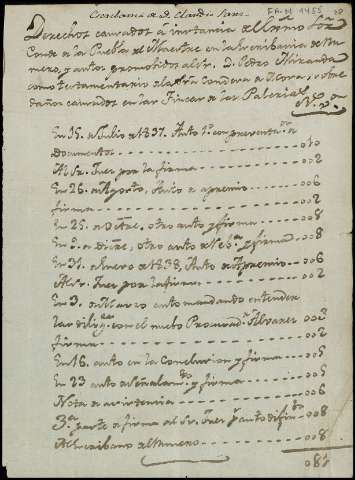 Escribania de D. Claudio Sanz
FA.M 1455
Derechos causados a instancia del Exmo Sor
Conde de la Puebla del Maestre en la escribania de Nu-
mero, y autos promovidos al Sr. D. Pedro Miranda
como testamentario de la Sra Condesa de Mora, sobre
daños causados en las Fincas de las
En 15. de Julio de 1837. Auto 1º con presentazn de
Documentos 010
Al Sr. Juez por la firma 002
En 26. de Agosto, Auto de apremio 006
firma 002
En 25. de otro auto y firma 008
En de Dicre, otro auto de y firma 008
En 31. de Enero de 1838, Auto de Apremio 006
Al Sr. Juez por la firma 002
En 3. de Marzo auto mandando entender
las diligs con el nuebo Procuradr Alvarez 003
firma 002
En 16. auto en la Conclusion y firma 005
En 23 auto de señalamto y firma 005
Nota de asistencia 006
3ª parte de firma al Sr. Juez pr auto difinito 008
Al Escribano del Numero 008